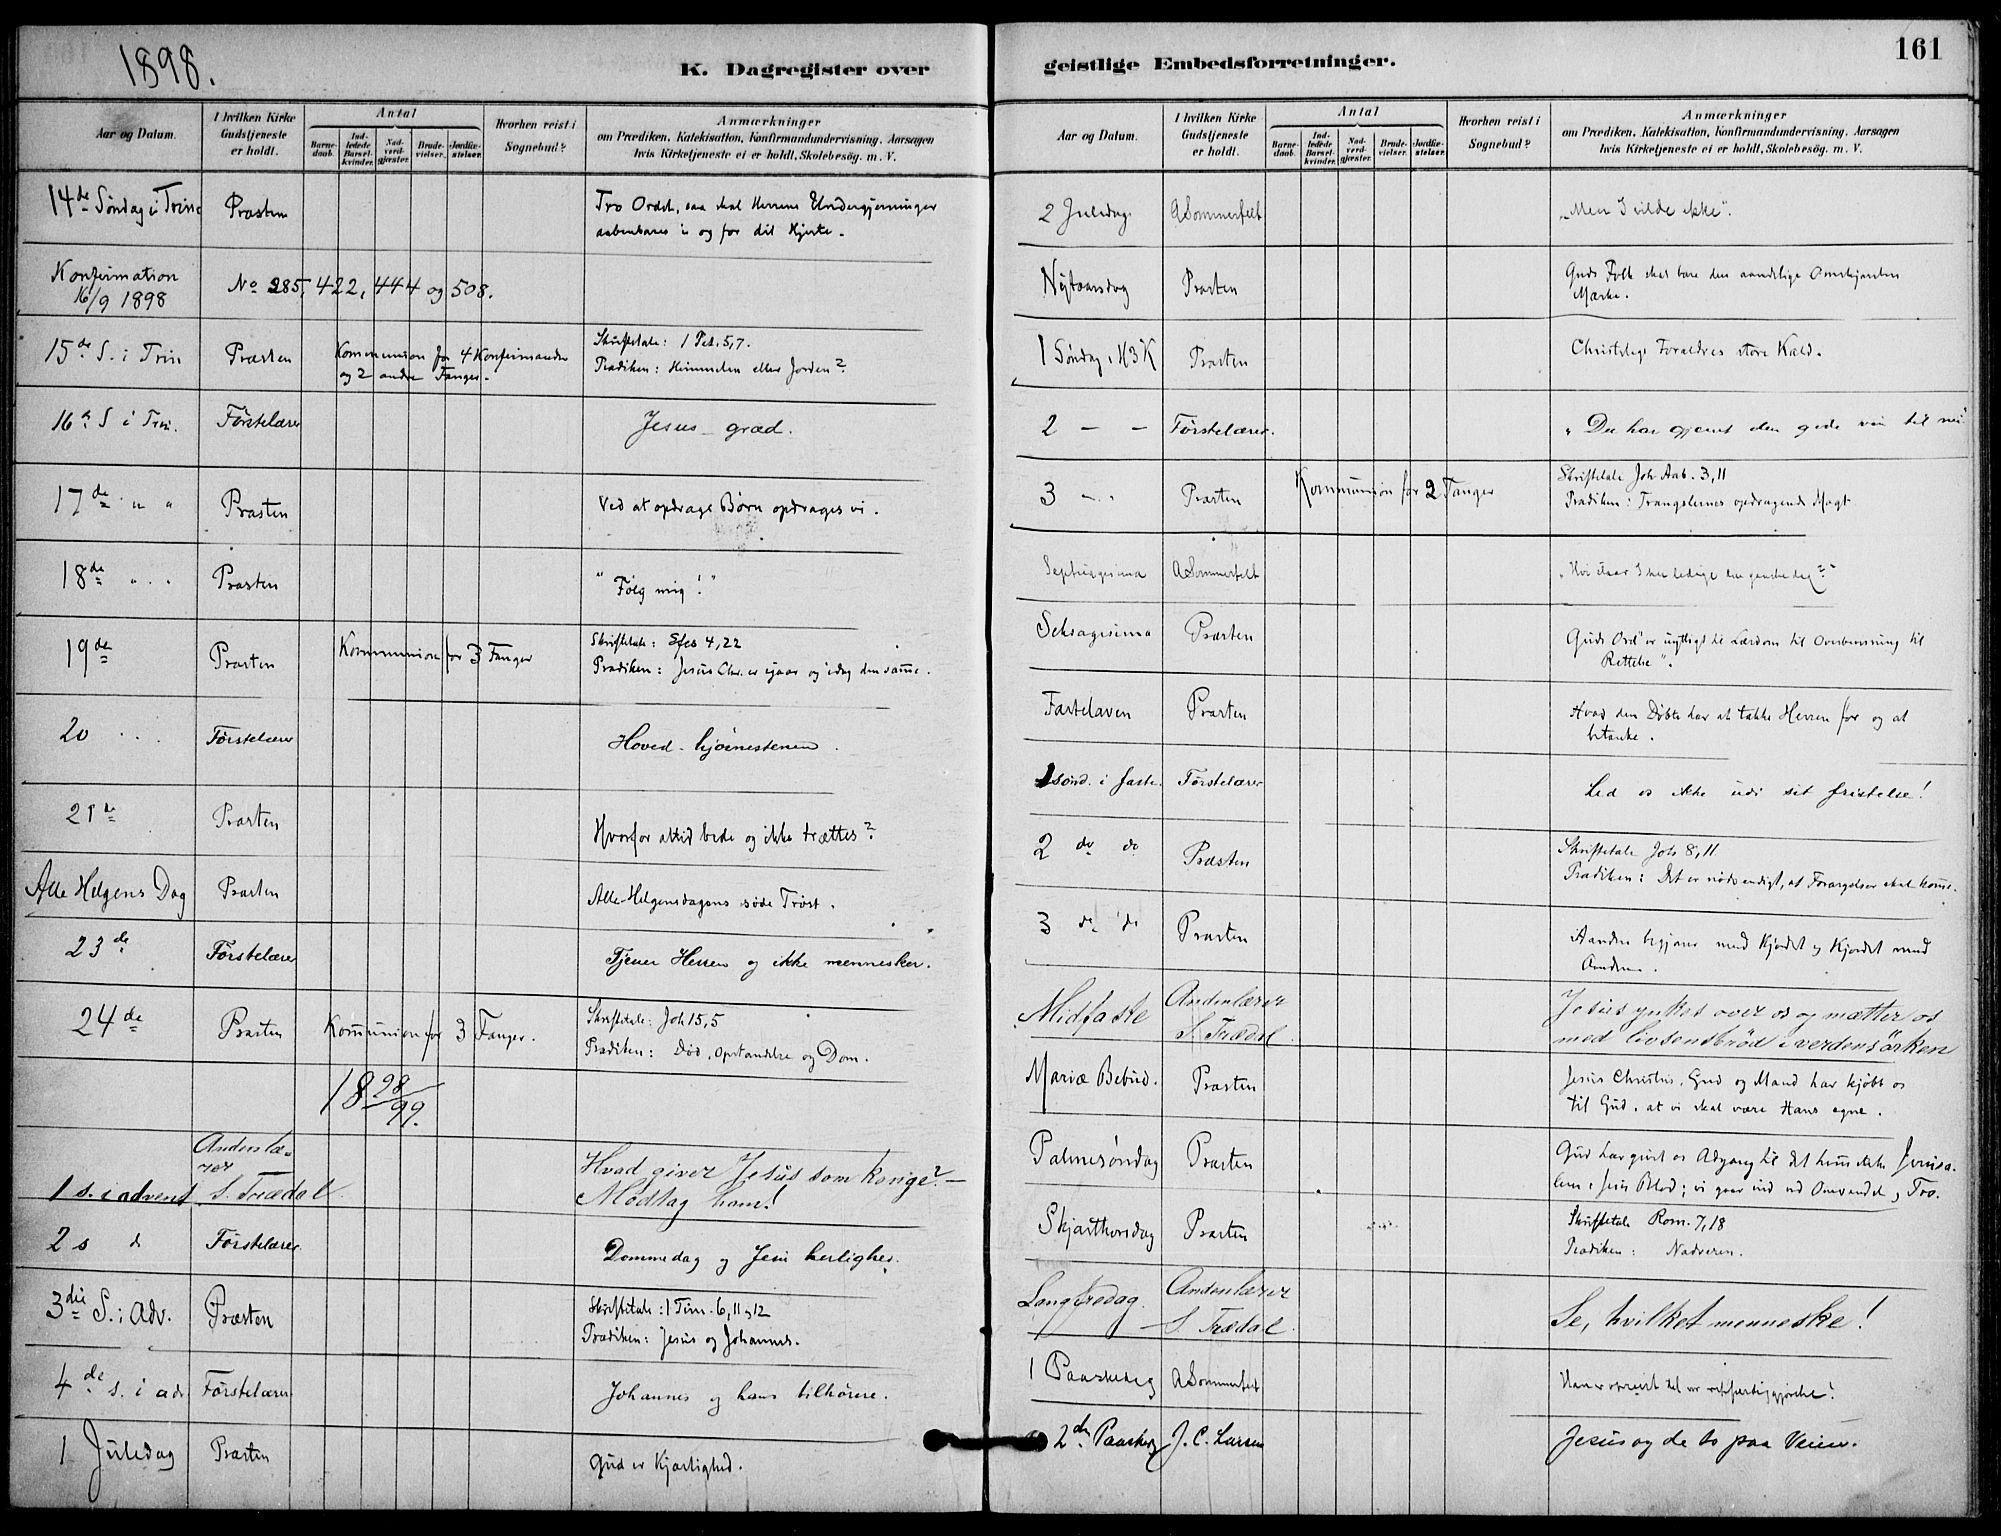 1898.
K. Dagregister over
Aar og Datum.
I hvilken Kirke Gudstjeneste er holdt.
Antal
Barnedaab.
Indledede Barselkvinder.
Nadverdgjæster.
Brudevielser.
Jordfæstelser.
Hvorhen reist i Sognebud?
Anmærkninger
om Prædiken, Katekisation, Konfirmandundervisning, Aarsagen
hvis Kirketjeneste ei er holdt, Skolebesøg. m. V.
14de Søndag i Trin Præsten Tro Ordet, saa skal Herrens Undergjerninger
aabenbares i og for dit Hjerte.
Konfirmation
16/9 1898 No 285, 422, 444 og 508.
15de S. i Trin Præsten Kommunion for 4 Konfirmander Skriftetale: 1 Pet. 5,7.
og 2 andre Fanger. Prædiken: Himmelen eller Jorden?
16de S i Trin. Førstelærer Jesus græd.
17de " " Præsten Ved at opdrage Børn opdrages vi.
18de " " Præsten "Følg mig!"
19de Præsten Kommunion for 3 Fanger Skriftetale: Efes 4,22
Prædiken: Jesus Chr. er igaar og idag den samme.
20 Førstelærer Hoved-hjørnestenen.
21de Præsten Hvorfor altid bede og ikke trættes?
Alle Helgens Dag Præsten Alle Helgensdagens søde Trøst.
23de Førstelærer Tjener Herren og ikke mennesker.
24de Præsten Kommunion for 3 Fanger. Skriftetale: Joh 15,5
Prædiken: Død, Opstandelse og Dom.
1898/99.
1 s. i advent Andenlærer S. Trædal Hvad giver Jesus som konge? —
Modtag ham!
2 s do Førstelærer Dommedag og Jesu herlighed.
3die S. i Adv. Præsten Skriftetale: 1 Tim. 6, 11, 12
Prædiken: Jesus og Johannes.
4de s. i adv Førstelærer Johannes og hans tilhørere.
1 Juledag Præsten Gud er Kjærlighed.
geistlige Embedsforretninger.
161
Aar og Datum.
I hvilken Kirke Gudstjeneste er holdt.
Antal
Barnedaab.
Indledede Barselkvinder.
Nadverdgjæster.
Brudevielser.
Jordfæstelser.
Hvorhen reist i Sognebud?
Anmærkninger
om Prædiken, Katekisation, Konfirmandundervisning, Aarsagen
hvis Kirketjeneste ei er holdt, Skolebesøg. m. V.
2 Juledag. A Sommerfelt "Men I vilde ikke".
Nytaarsdag Præsten Guds Folk skal bære den aandelige Omskjærelses
Mærke.
1 Søndag i H3K Præsten Christelige Forældres store Kald.
2 — — Førstelærer. "Du har gjemt den gode vin til nu"
3 — Præsten Kommunion for 2 Fanger Skriftetale Joh Aab. 3,11
Prædiken: Trængslernes opdragende Magt
Septuagesima A Sommerfelt "Hvi staar I her ledige den ganske dag?"
Seksagesima Præsten Guds Ord "er nyttigt til Lærdom til Overbevisning til
Rettelse".
Fastelaven Præsten Hvad den Døbte har at takke Herren for og at
betænke.
1 sønd. i faste. Førstelærer Led os ikke udi fristelse!
2 do do Præsten Skriftetale Joh 8,11.
Prædiken: Det er nødvendigt, at Forargelser skal komme.
3 do do Præsten Aanden begjærer mod Kjødet og Kjødet mod
Aanden.
Midfaste Andenlærer S. Trædal. Jesus ynkes over os og mætter os
med livsensbrød i verdensørken
Mariæ Bebud. Præsten Jesus Christus, Gud og Mand har kjøbt os
til Gud, at vi skal være Hans egne.
Palmesøndag Præsten Gud har givet os Adgang til det himmelske Jerusalem
i Jesu Blod; vi gaar ind ved Omvendelse og Tro.
Skjærthorsdag Præsten Skriftetale Rom. 7,18
Prædiken: Nadveren.
Langfredag. Andenlærer S. Trædal. Se, hvilket menneske!
1 Paaskedag A Sommerfelt
2den Paaskedag J. C. Larsen Jesus og de to paa Veien.